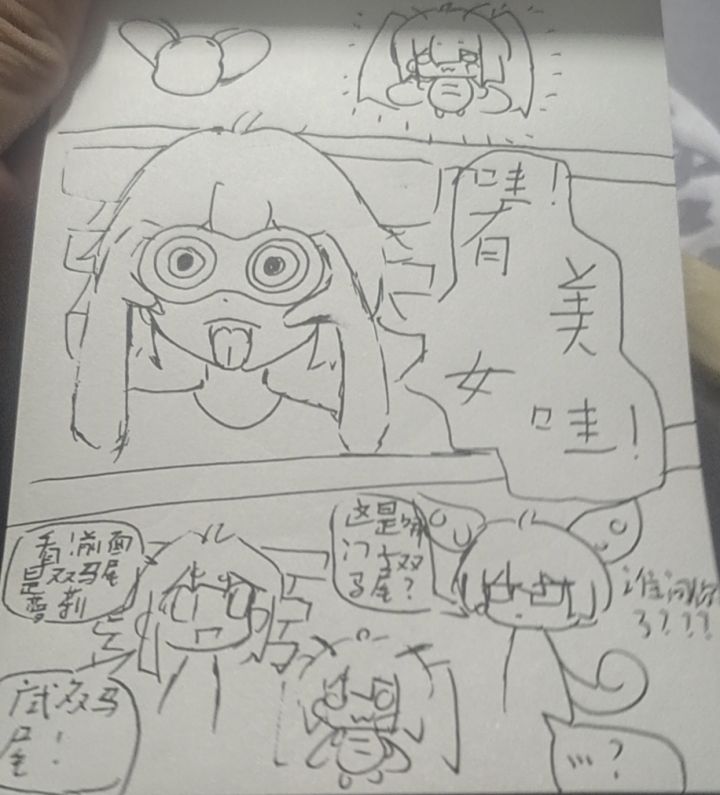 哇!
有
美
女
哇!
看!前面
是双马尾
萝莉
这是你
们士双
马尾?
谁问你
了???
尾!
…?